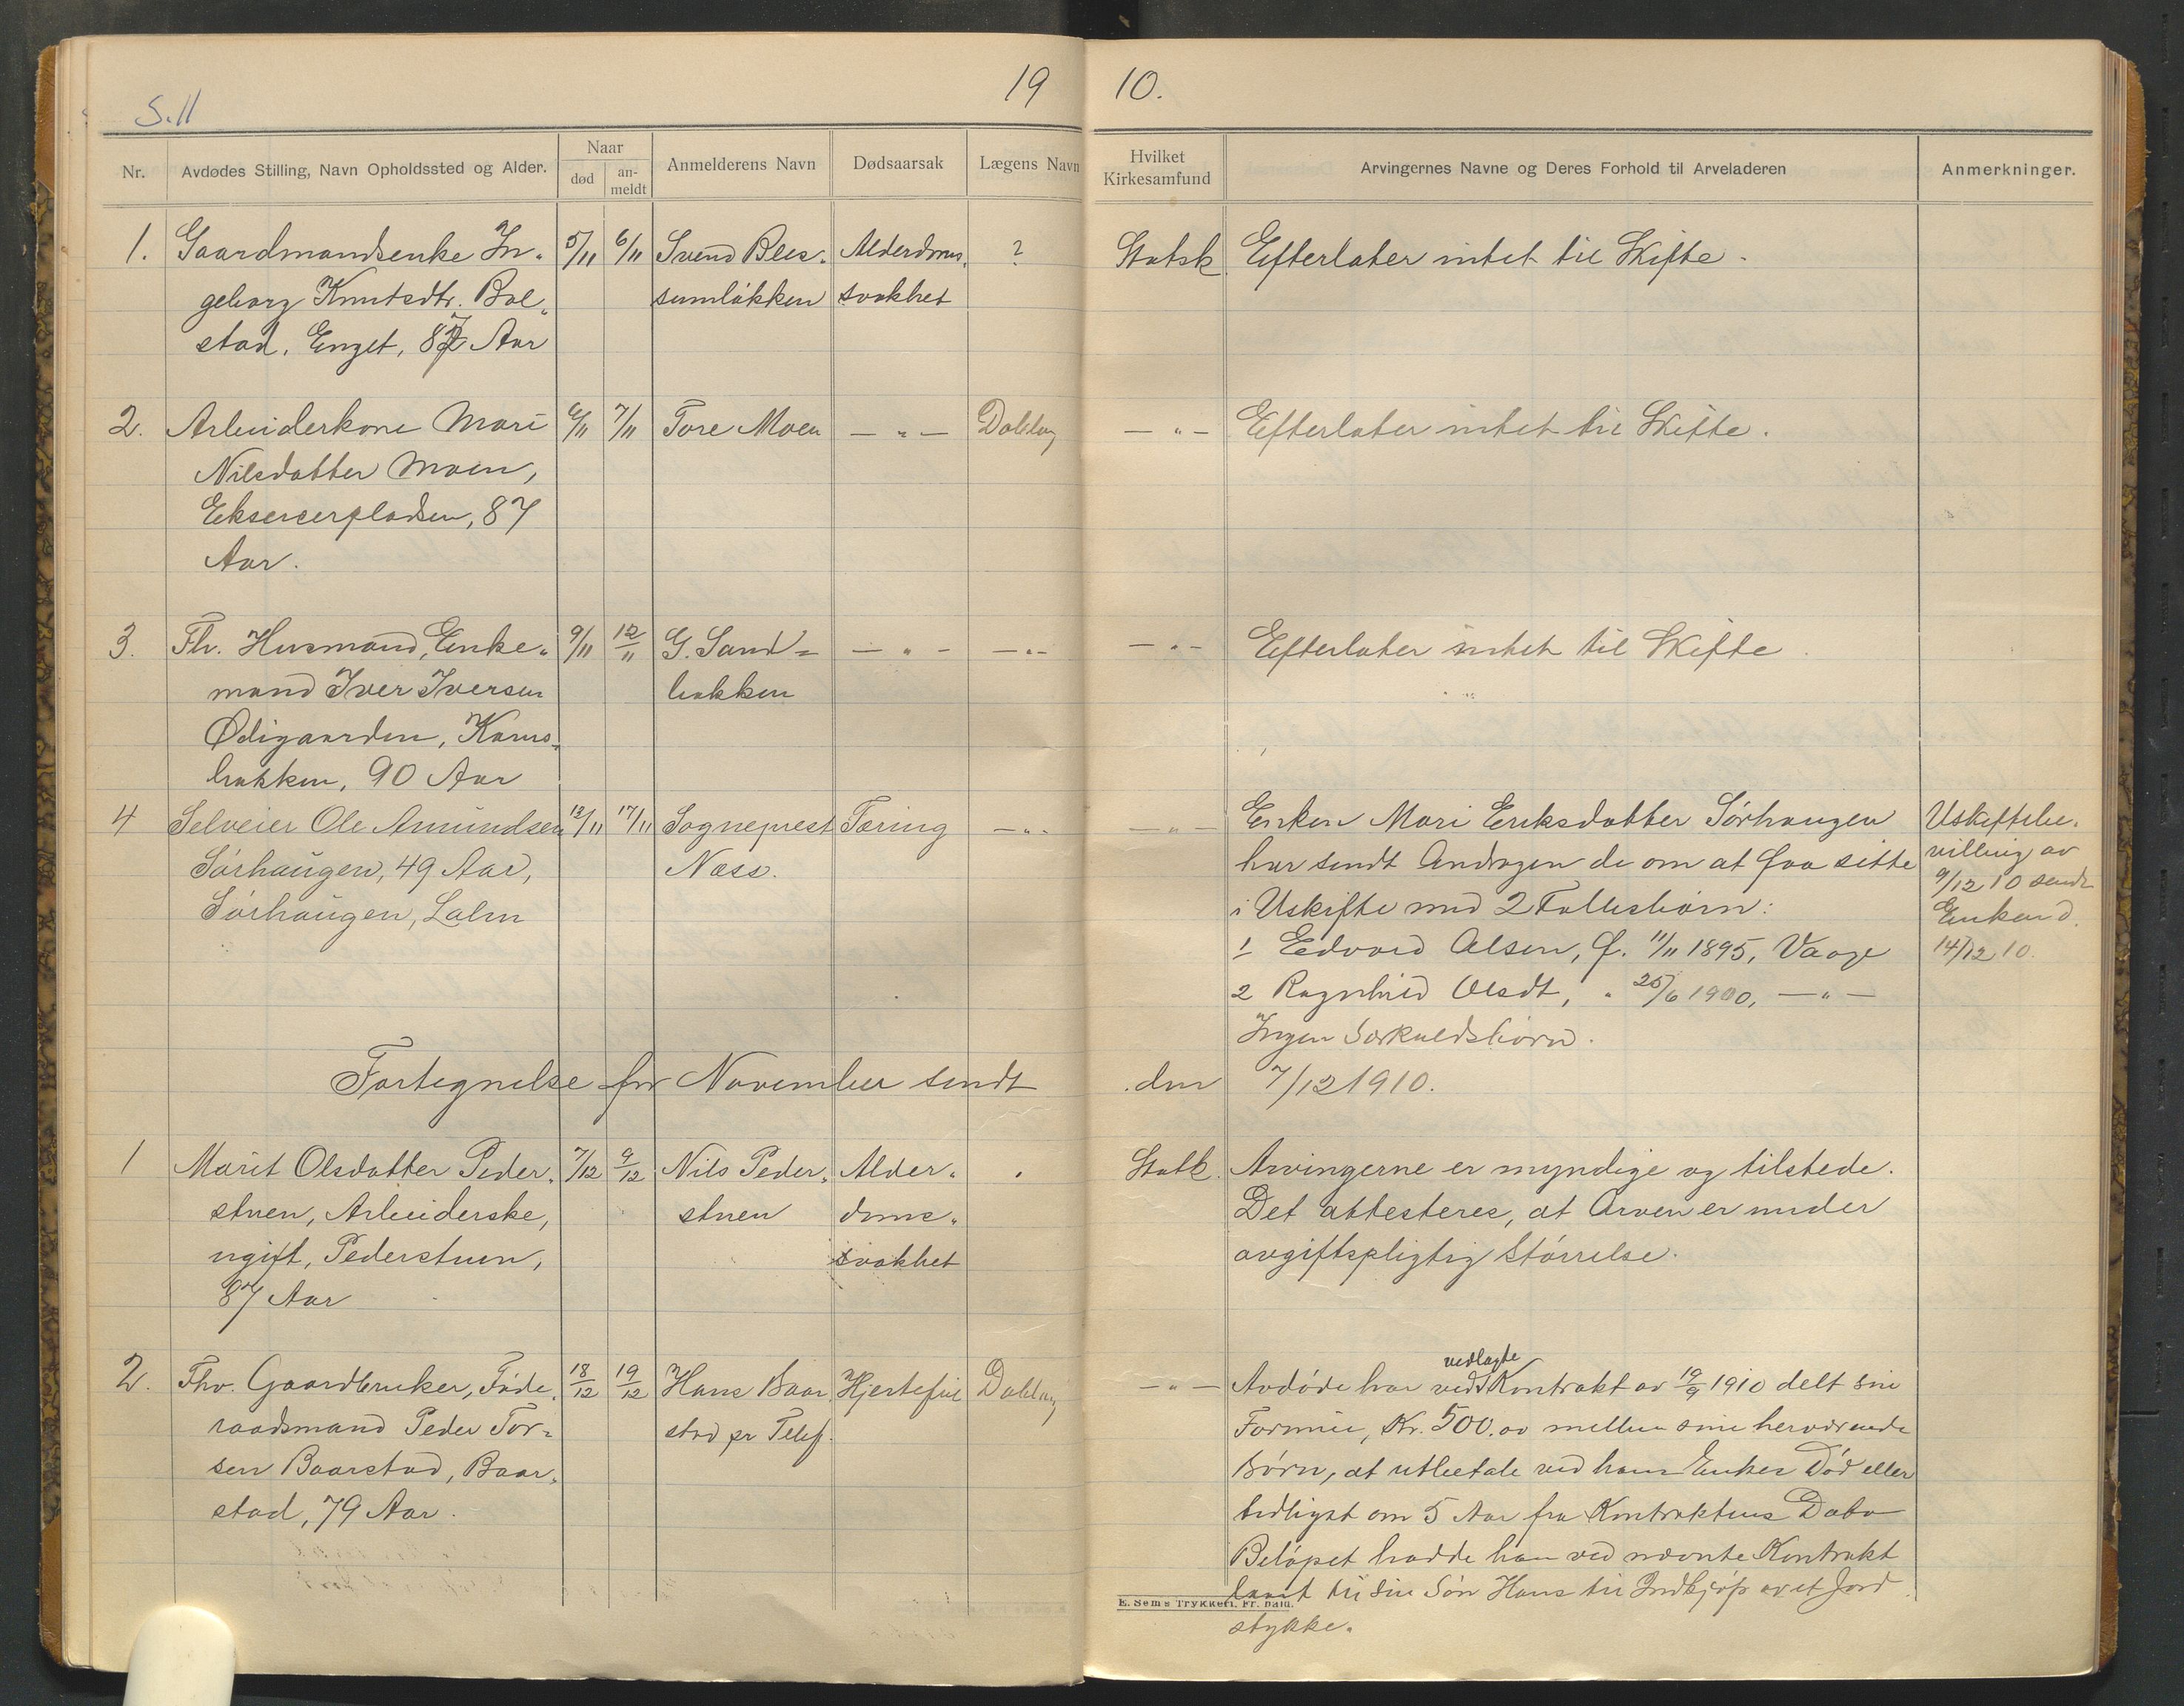 S. 11
19 10.
Nr. Avdødes Stilling, Navn Opholdssted og Alder. Naar død an-meldt Anmelderens Navn Dødsaarsak Lægens Navn Hvilket Kirkesamfund Arvingernes Navne og Deres Forhold til Arveladeren Anmerkninger.
1. Gaardmandsenke In- 5/11 6/11 Svend Bles- Alderdoms- ? Statsk. Efterlater intet til Skifte.
geborg Knutsdtr. Bol- sumløkken svakhet
stad, Enget, 87 Aar
2. Arbeiderkone Mari 6/11 7/11 Tore Moen — " — Dahl — " — Efterlater intet til Skifte.
Nilsdatter Moen,
Ekserserpladsen, 87
Aar.
3. Fh. Husmand, Enke- 9/11 12/11 G. Sand- — " — — " — — " — Efterlater intet til Skifte.
mand Iver Iversen bakken
Ødigaarden,
bakken, 90 Aar
4 Selveier Ole Amundsen 12/11 17/11 Sogneprest Tæring — " — — " — Enken Mari Eriksdatter Sørhaugen Uskiftebe-
Sørhaugen, 49 Aar, Næss. har sendt Andragende om at faa sitte villing av
Sørhaugen, Lalm i Uskifte med 2 Fællesbørn: 9/12 10 sendt
1 Edvard Olsen, f. 11/11 1895, Vaage Enken d.
2 Ragnhild Olsdt, " 25/6 1900, — " — 14/12 10.
Ingen Særkuldsbørn.
Fortegnelse for November sendt den 7/12 1910.
1 Marit Olsdatter Peder- 7/12 9/12 Nils Peder- Alder- . Statk. Arvingerne er myndige og tilstede.
stuen, Arbeiderske, stuen doms- Det attesteres, at Arven er under
ugift, Pederstuen, svakhet avgiftspligtig Størrelse.
87 Aar
2. Fhv. Gaardbruker, Føde- 18/12 19/12 Hans Baar- Hjertefeil — " — Avdøde har ved vedlagte Kontrakt av 19/9 1910 delt sin
raadsmand Peder Tor- stad pr Telef. Formue, Kr. 500.00 mellem sine herværende
sen Baarstad, Baar- Børn, at utbetale ved hans Enkes Død eller
stad, 79 Aar. tidligst om 5 Aar fra Kontraktens Dato
Beløpet hadde han ved nævnte Kontrakt
laant til sin Søn Hans til Indkjøp av et Jord
E. Sems Trykkeri, Fr.hald.
stykke.